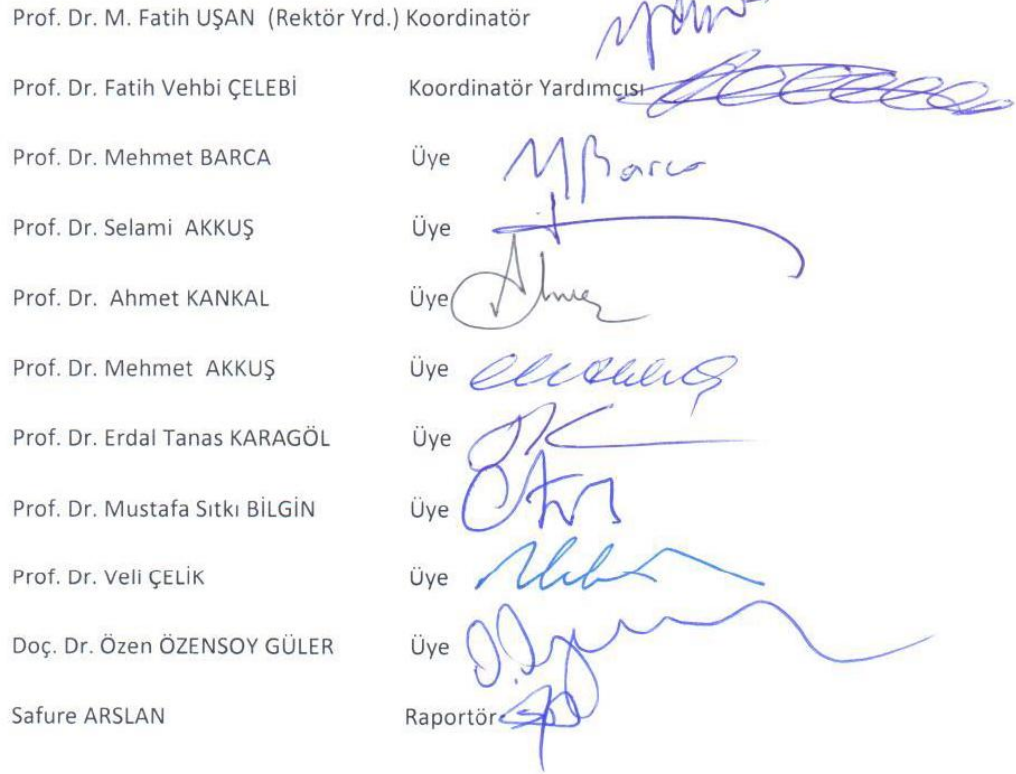 Prof. Dr. M. Fatih UŞAN (Rektör Yrd.) Koordinatör
Prof. Dr. Fatih Vehbi ÇELEBİ Koordinatör Yardımcısı
Prof. Dr. Mehmet BARCA Üye M Barca
Prof. Dr. Selami AKKUŞ Üye
Prof. Dr. Ahmet KANKAL Üye
Prof. Dr. Mehmet AKKUŞ Üye
Prof. Dr. Erdal Tanas KARAGÖL Üye
Prof. Dr. Mustafa Sıtkı BİLGİN Üye
Prof. Dr. Veli ÇELİK Üye
Doç. Dr. Özen ÖZENSOY GÜLER Üye
Safure ARSLAN Raportör